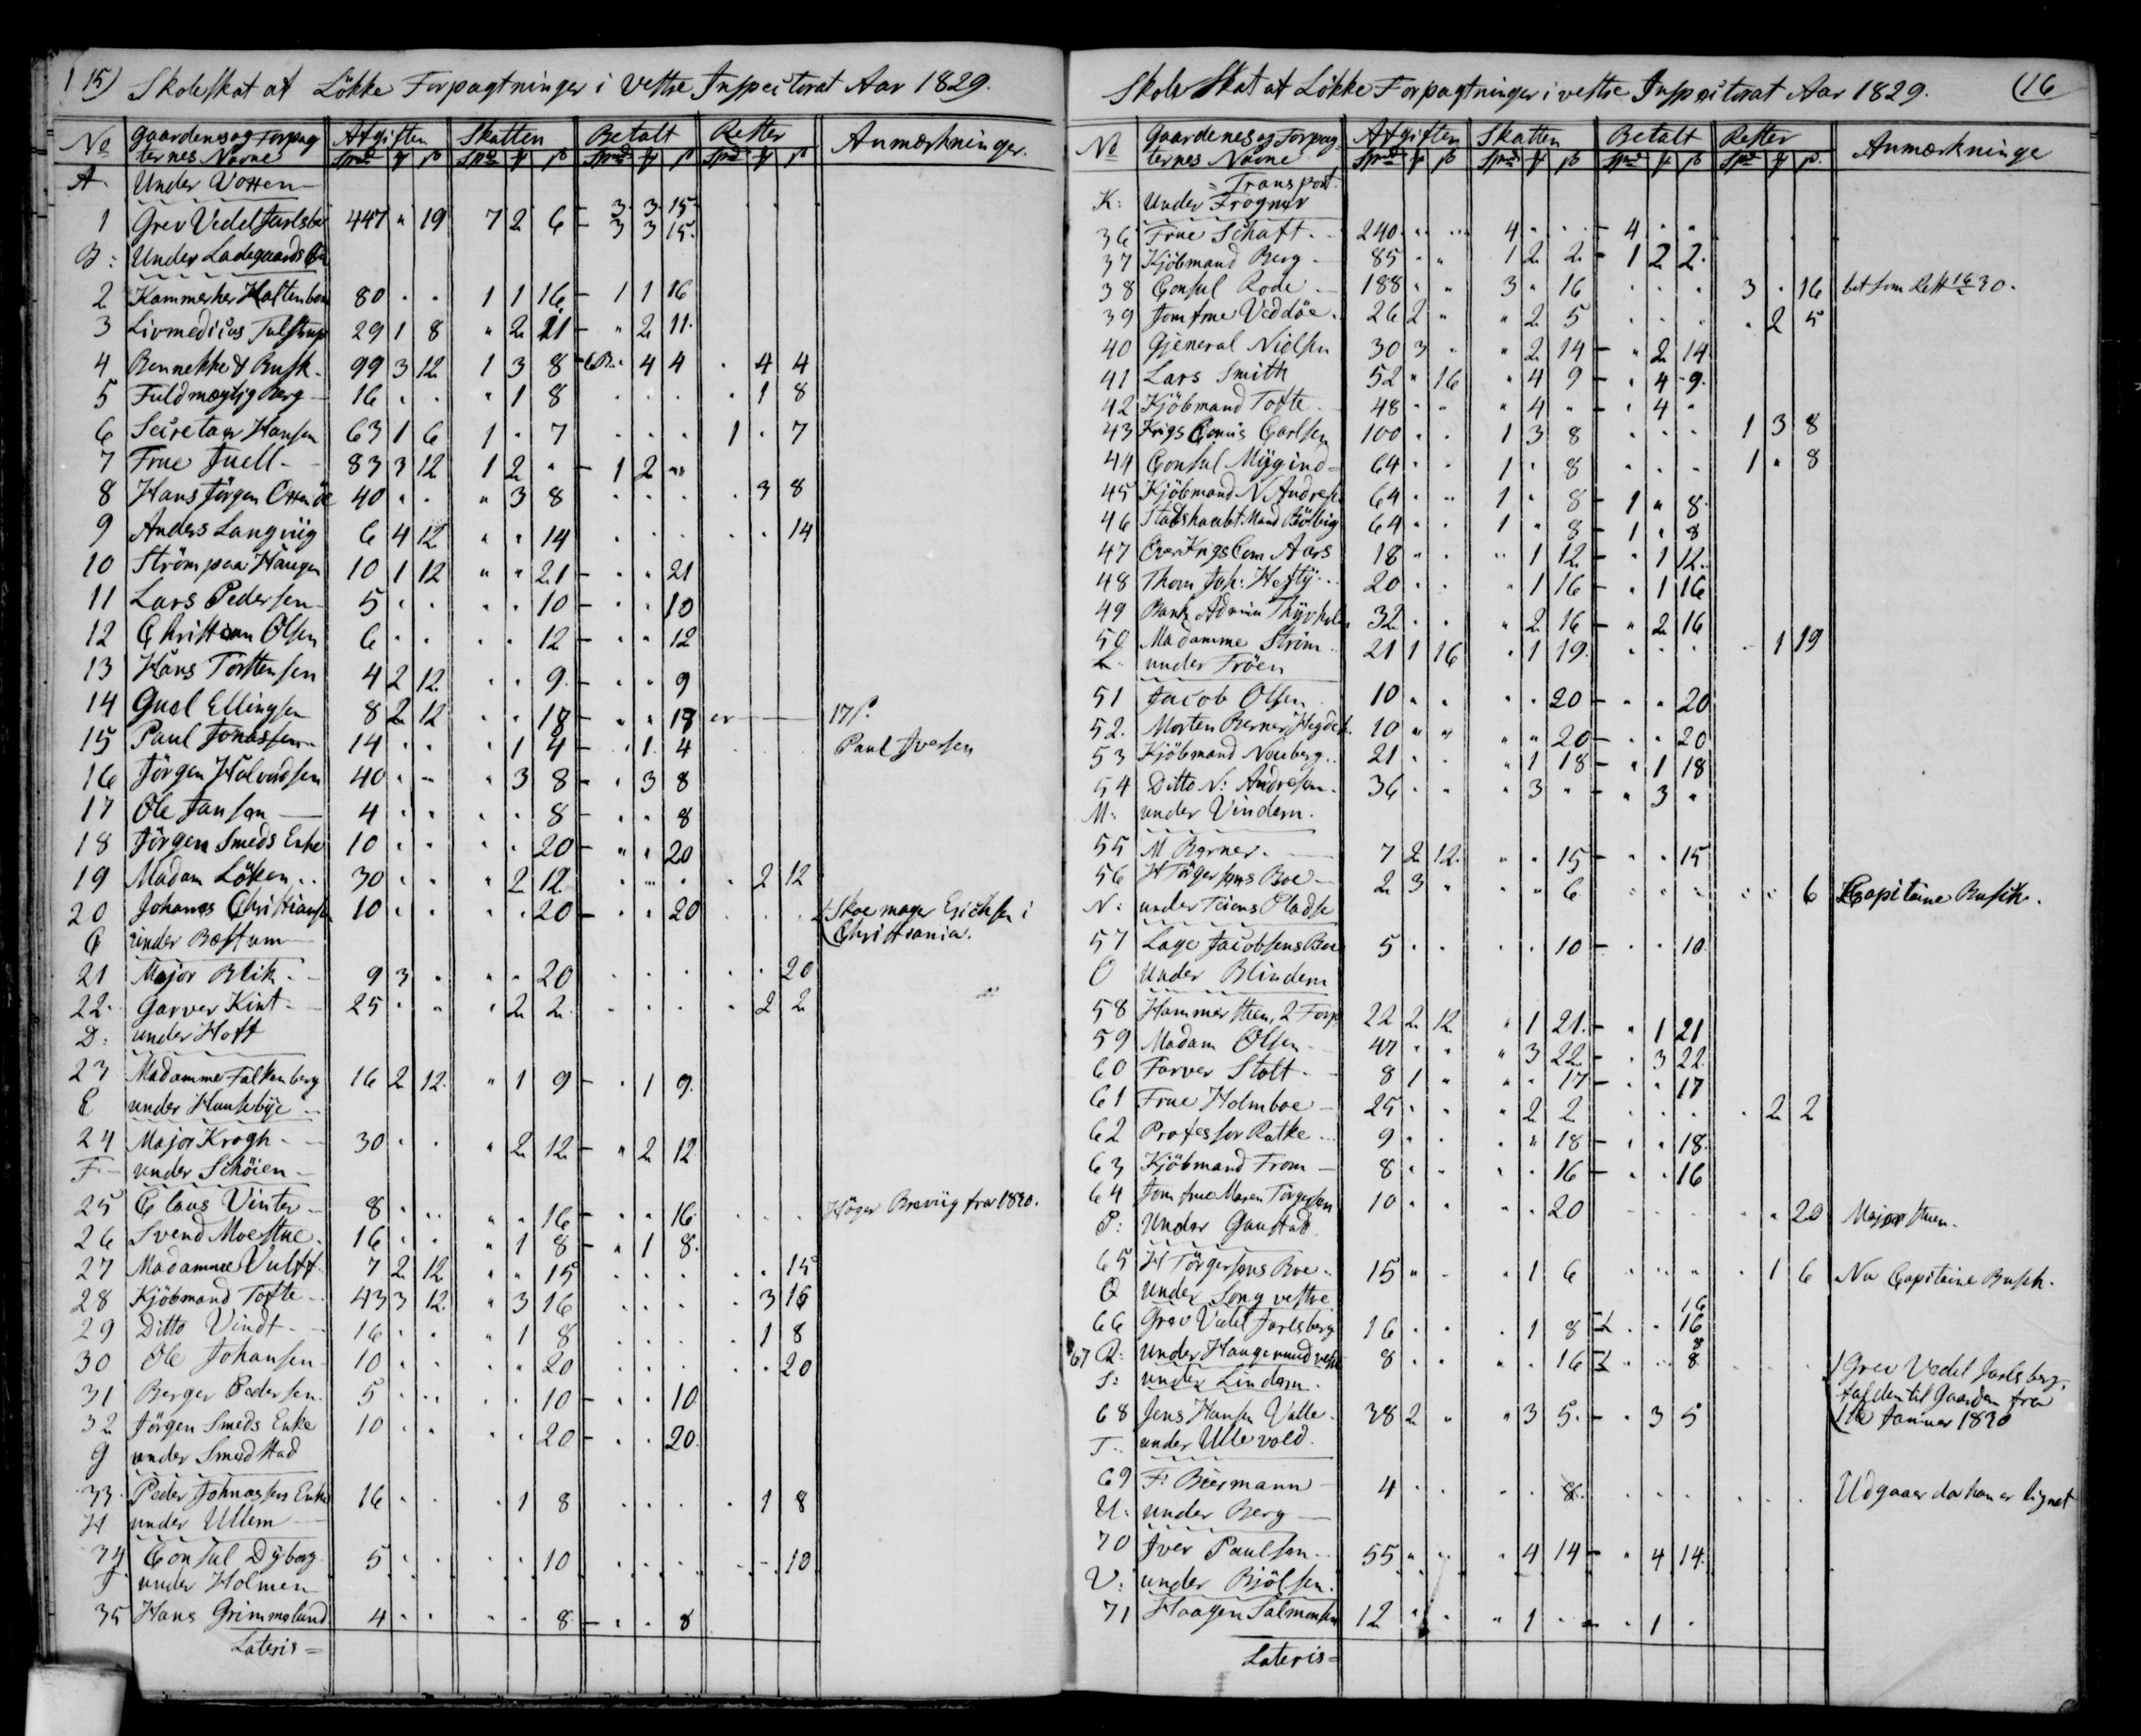 15) Skoleskat af Løkke Forpagtninger i Vestre Inspectorat Aar 1829.
No Gaardenes og Forpagternes Navne Afgiften Skatten Betalt Rester Anmærkninger.
Spd ƒ β Spd ƒ β Spd ƒ β Spd ƒ β
A. Under
3 3 15
1 Grev Vedel Jarlsbe 447 " 19 7 2 6 - 3 3 15.
B: Under Ladegaards
2 Kammerher 80 . . 1 1 16 - 1 1 16
3 Livmedicus 29 1 8 " 2 21 - " 2 11.
4 Bennekke & Busk. 99 3 12 1 3 8 4 4 . 4 4
5 Fuldmægtig Berg 16 . . " 1 8 . . . . 1 8
6 Secretær Hansen 63 1 6 1 . 7 . . . 1 . 7
7 Frue Juell - 83 3 12 1 2 " - 1 2 "
8 Hans Jørgen 40 . . " 3 8 . . . . 3 8
9 Anders Langviig 6 4 12 " . 14 . . . . . 14
10 Strøm paa Haugen 10 1 12 " " 21 - . . 21
11 Lars Pedersen 5 . . . . 10 - . . 10
12 Christian Olsen 6 . . . . 12 - . . 12
13 Hans Torstensen 4 2 12 . . 9. - . . 9
14 Gusl Ellingsen 8 2 12 . . 18 - " . 18 er — 17 β.
15 Paul Jonassen 14 . . . 1 4 - . 1 4 . . . Paul Iversen
16 Jørgen Halvordsen 40 . - . 3 8 - . 3 8
17 Ole Jansen 4 . . . . 8 - . . 8
18 Jørgen Smeds Enke 10 . . . . 20 - " . 20
19 Madam Løken . . 30 . . " 2 12 . . . . 2 12
20 Johannes Christiansen 10 . . . . 20 - . . 20 . . . Skoemager Erichsen i
Christiania.
C under Bæstum
21 Major Blik. 9 3 . " . 20 . . . . . 20
22. Garver Kint - 25 . . " 2 2 . . . . 2 2
D. under Hoff
23 Madamme Falkenberg 16 2 12. " 1 9 - . 1 9.
E under Huusebye
24 Major Krogh - 30 . . " 2 12 - " 2 12
F - under Schøien -
25 Claus Vinter - 8 . . " . 16 - . . 16 . . . Høger Breviig fra 1830.
26 Svend Moestue. 16 . . " 1 8 - " 1 8.
27 Madamme Vulff 7 2 12 " . 15 . . . . . 15
28 Kjöbmand Tofte 43 3 12. " 3 16 . . . . 3 16
29 Ditto Vindt - 16 . . " 1 8 . . . . 1 8
30 Ole Johansen 10 . . . . 20 . . . . . 20
31 Berger Pedersen 5 . . . . 10 - . . 10
32 Jørgen Smeds Enke 10 . . . . 20 - . . 20.
G under Smedstad
33 Peder Johnassens Enke 16 . . . 1 8 . . . . 1 8
H under Ullern
34 Consul Dyborg 5 . . . . 10 . . . . . 10
J under Holmen
35 Hans Grimmelund 4 . . . . 8 - . . 8
Lateris =
Skole Skat af Løkke Forpagtninger i vestre Inspectorat Aar 1829. (16
No Gaardenes og Forpagternes Navne Afgiften Skatten Betalt Rester Anmærkninge
Spd ƒ β Spd ƒ β Spd ƒ β Spd ƒ β.
= Transport.
K: Under Frogner
36 Frue Schaft. 240. . . 4 . . - 4 . .
37 Kjöbmand Berg - 85 . " 1 2 2. - 1 2 2.
38 Consul Rode - 188 " " 3 " 16 . . . 3 . 16 bet som Rest 30.
39 Jomfrue Veddöe. 26 2 " " 2 5 . . . . 2 5
40 Gjeneral Nielsen 30 3 . " 2 14 - " 2 14
41 Lars Smith 52 " 16 " 4 9 - . 4 9.
42 Kjöbmand Tofte 48 . " " 4 " - . 4 "
43 Krigs Comis Carlsen 100 . . 1 3 8 . . . 1 3 8
44 Consul Mygind - 64 . . 1 . 8 . . . 1 " 8
45 Kjöbmand N. Andresen 64 . " 1 . 8 - 1 " 8.
46 Stadshaubtmand 64 . . 1 . 8 - 1 . 8
47 Over Krigs Com Aars 18 . . " 1 12 - " 1 12.
48 Thom Joh: Hefty . . 20 . . " 1 16 - . 1 16
49 Bank Admin Thyrholm 32 . . " 2 16 - " 2 16
50 Madamme Strøm 21 1 16 . 1 19. . . . . 1 19
L. under Frøen
51 Jacob Olsen 10 . . . . 20 - . . 20
52. Morten Berner 10 " " " " 20 - . . 20
53 Kjöbmand Neuberg . . 21 . . " 1 18 - " 1 18
54 Ditto N. Andresen. 36 . . " 3 " - " 3 "
M. under Vindern.
55 M Berner. 7 2 12. " . 15 - . . 15
56 H Törgersens Boe - 2 3 " " " 6 . . . . . 6 Capitaine Busch.
N. under Teiens Pladse
57 Lage Jacobsens Boe 5 . . . . 10 - . . 10.
O Under Blindern
58 Hammersteen, 2 Forp 22 2 12 " 1 21. - " 1 21
59 Madam Olsen - 47 . . " 3 22 - . 3 22.
60 Farver Stolt - 8 1 " " . 17 - . . 17
61 Frue Holmboe - 25 . . " 2 2 . . . . 2 2
62 Professor Ratke . . 9 . . " " 18 - . . 18.
63 Kjöbmand From - 8 . . . . 16 - . . 16
64 Jomfrue Maren Törgersen 10 . . . . 20 . . . . " 20 Major Steen.
P. Under Gaustad
65 H Törgersens Boe . . 15 " . " 1 6 . . . . 1 6 Nu Capitaine Busch.
Q under Song vestre
16
66 Grev Vedel Jarlsberg 16 . . . 1 8 . . 16
8
67 R: under Haugerund vestre 8 . . . . 16 . . 8. . . . Grev Vedel Jarlsberg,
S: under Lindern. falden til Gaarden fra
68 Jens Hansen Valle. 38 2 " " 3 5. - . 3 5 1ste Januar 1830
T. under Ullevold.
69 F: Biermann - 4 . . . . 8. . . . . . . Udgaaer da han er lignet
U. under Berg -
70 Iver Paulsen . . 55 . . . 4 14 - " 4 14.
V: under Bjölsen.
71 Haagen Salmonsen 12 . . " 1 . - . 1 .
Lateris =